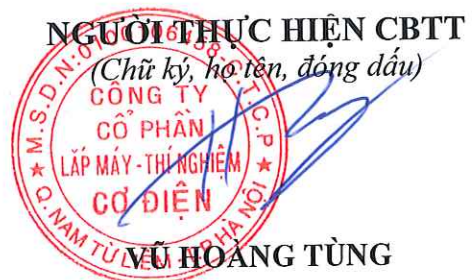 NGƯỜI THỰC HIỆN CBTT
(Chữ ký, họ tên, đóng dấu)
CÔNG TY
CỔ PHẦN
LẮP MÁY - THÍ NGHIỆM
CƠ ĐIỆN
Q. NAM TỪ LIÊM - T.P HÀ NỘI
VŨ HOÀNG TÙNG